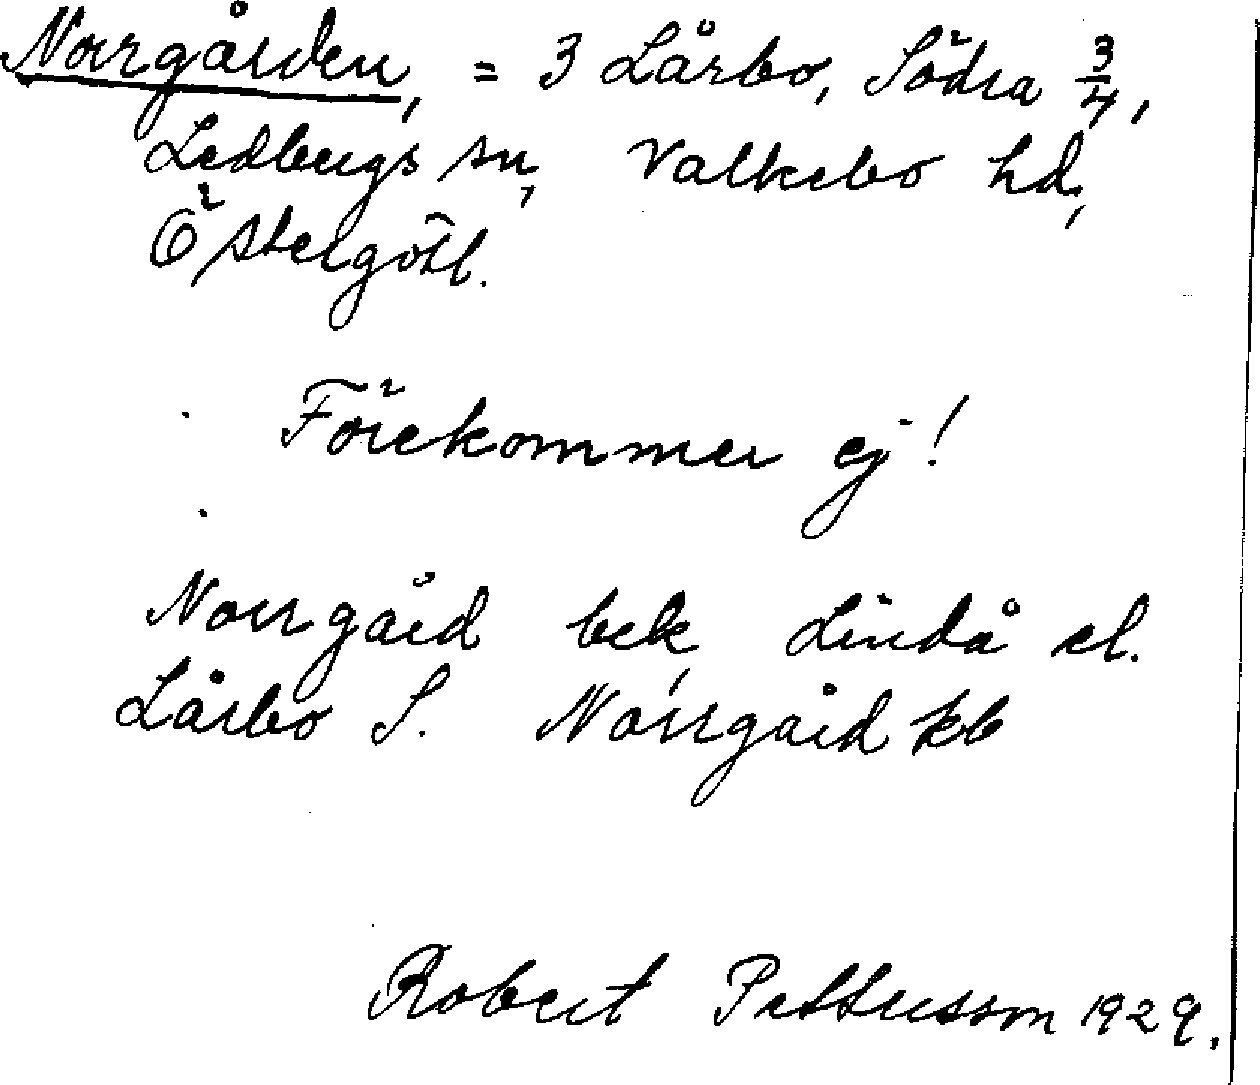 Norrgården, = 3 Lårbo, Södra 3/4,
Ledbergs sn, Valkebo hd,
Östergötl.
Förekommer ej!
Norrgård bek, Lindå el.
Lårbo S. Norrgård kb
Robert Pettersson 1929.